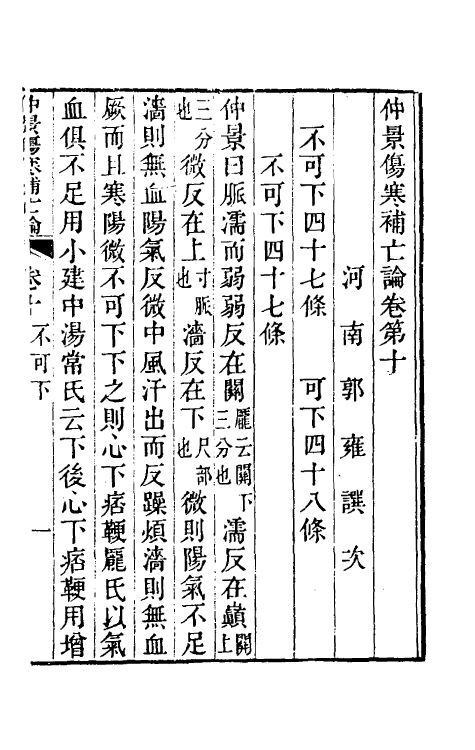 仲景傷寒補亡論卷第十
河南郭雍譔次
不可下四十七條　可下四十八條
不可下四十七條
仲景曰脈濡而弱弱反在關龐云關下三分也濡反在巔關上
三分也微反在上寸脈也濇反在下尺部也微則陽氣不足
濇則無血陽氣反微中風汗出而反躁煩濇則無血
厥而且寒陽微不可下下之則心下痞鞕龐氏以氣
血俱不足用小建中湯常氏云下後心下痞鞕用增
仲景傷寒補亡論　卷十　不可下　一